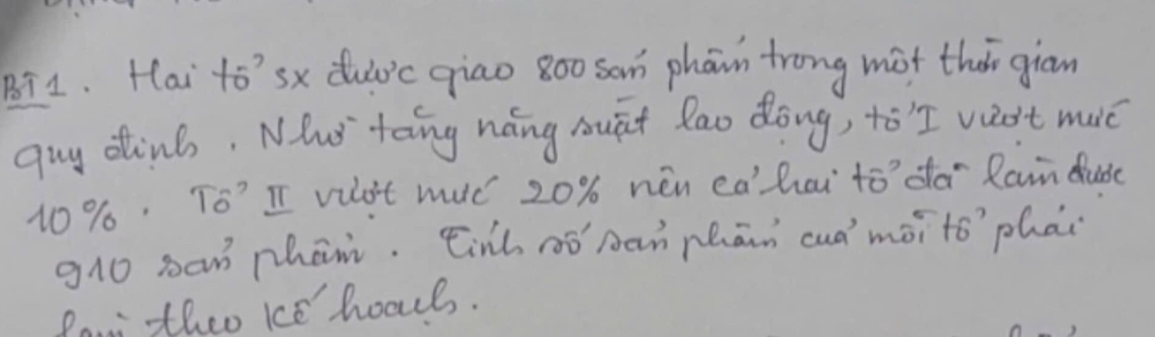 BT1. Hai tổ sx được giao 800 sản phẩm trong một thời gian
quy định. Nhờ tăng năng suất lao động, tổ I vượt mức
10%. Tổ II vượt mức 20% nên cả hai tổ đã làm được
910 sản phẩm. Tính số sản phẩm của mỗi tổ phải
làm theo kế hoạch.